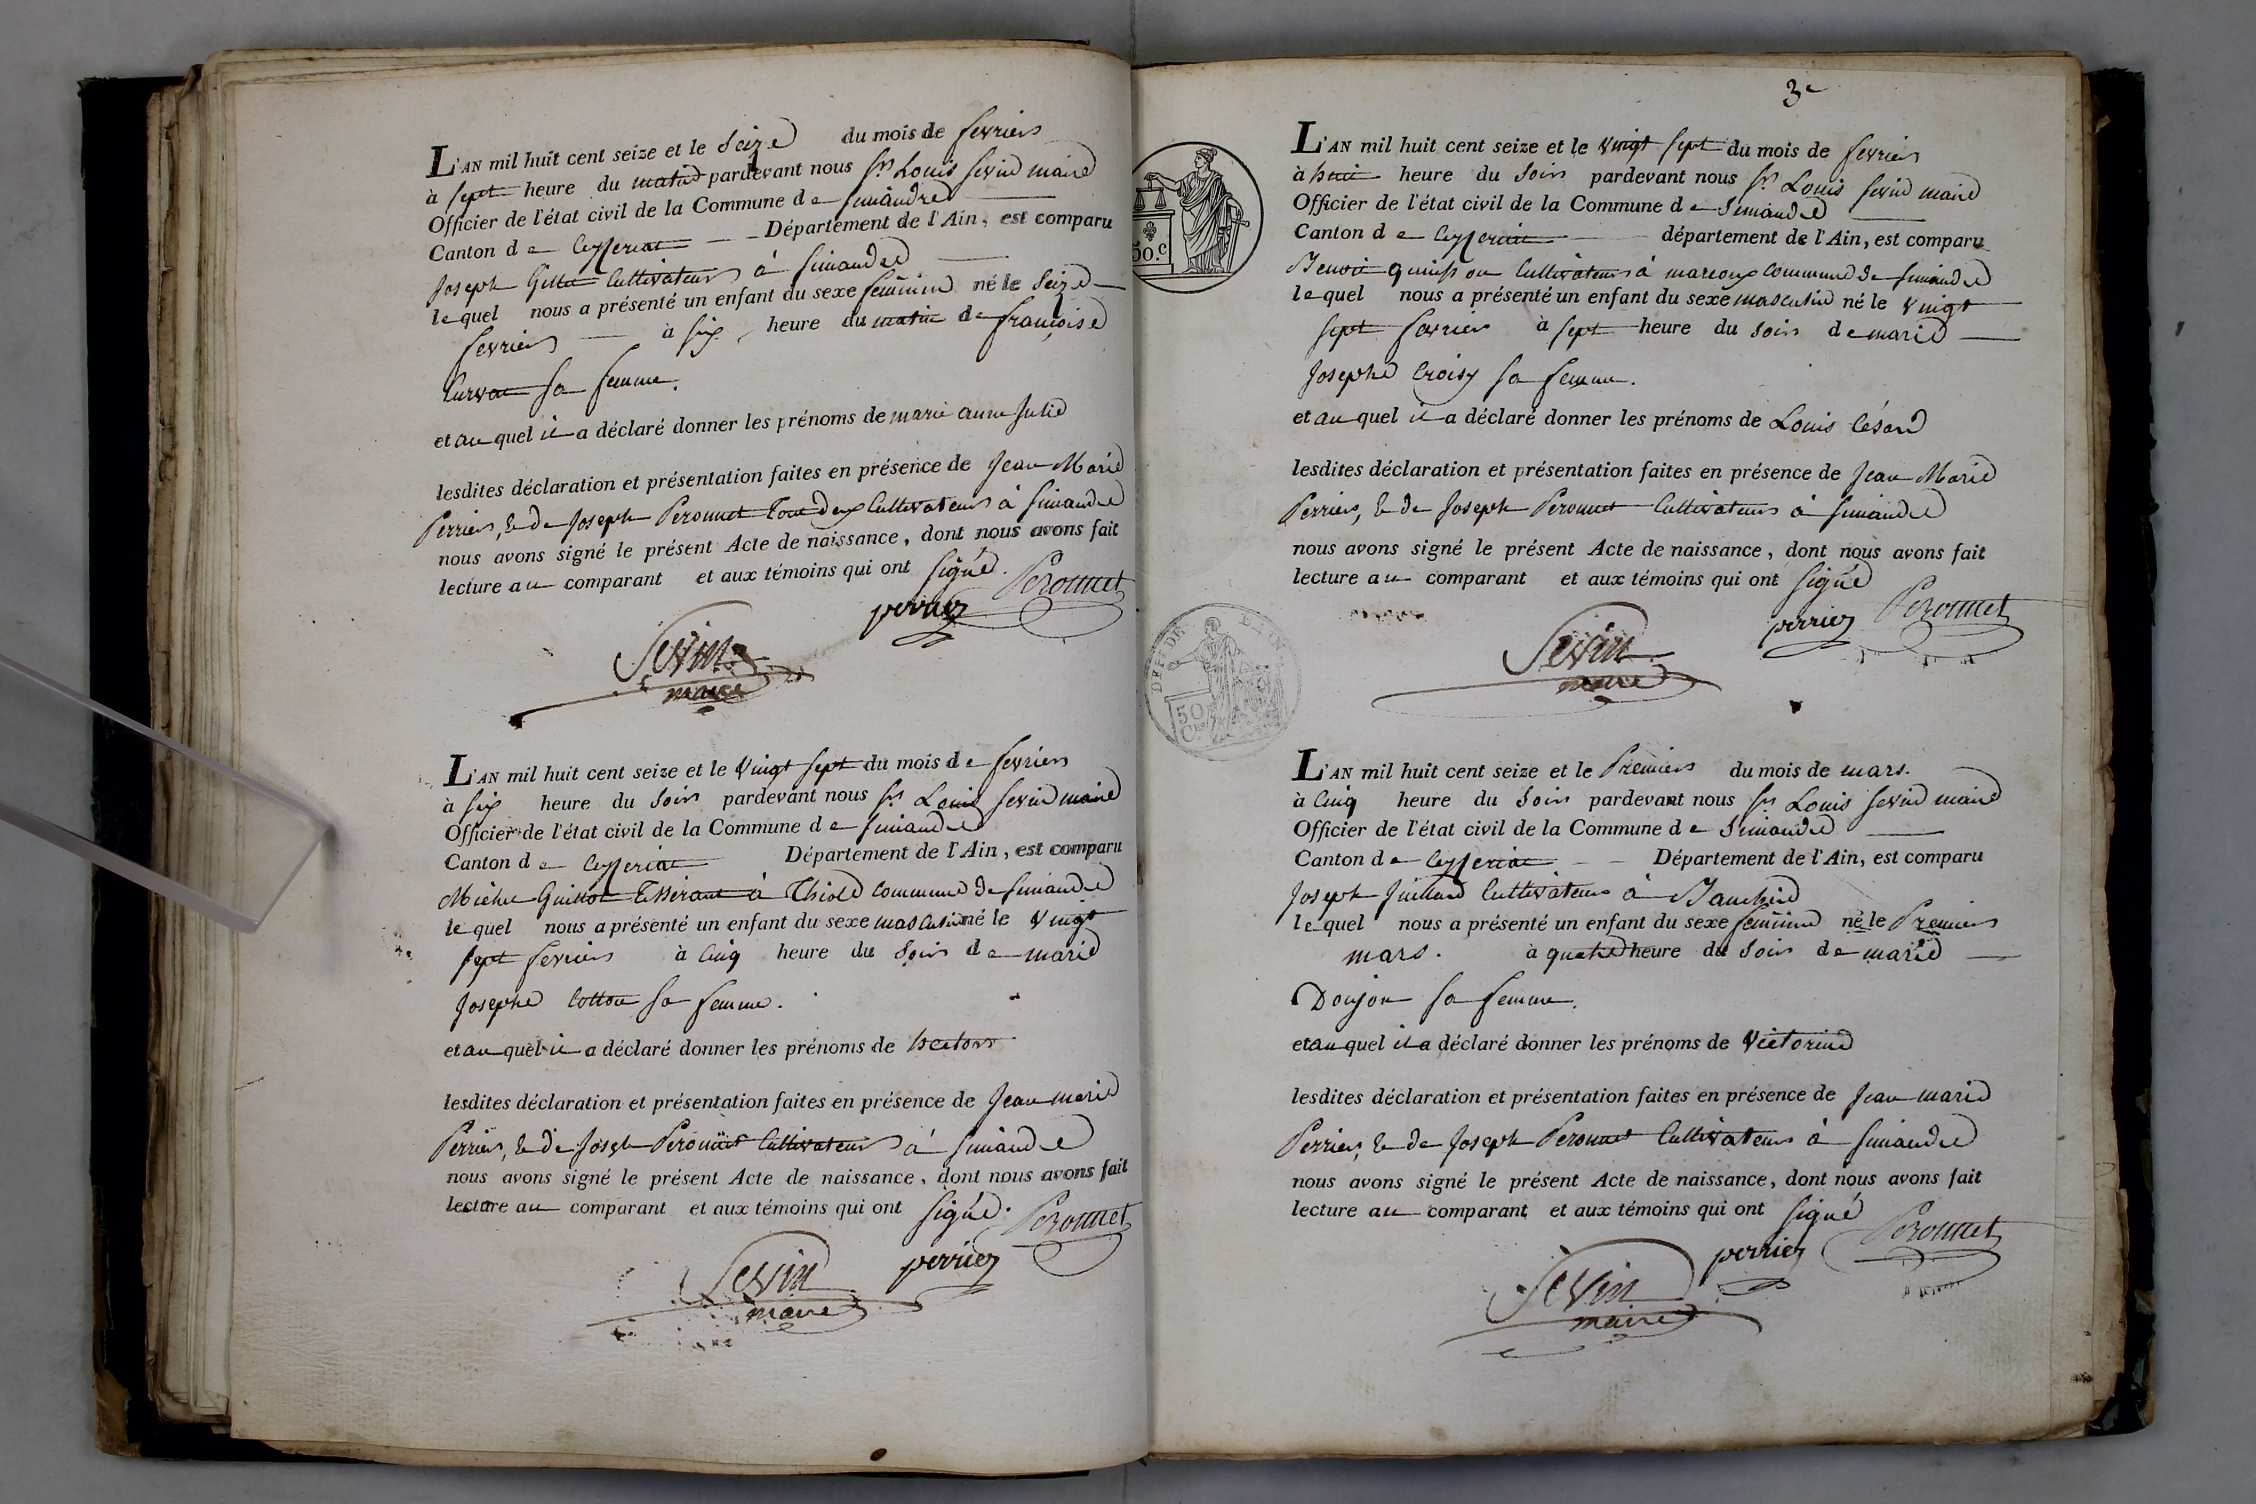 L'AN mil huit cent seize et le Seize du mois de fevrier
à sept heure du matin pardevant nous Sr. Louis Sevin maire
Officier de l'état civil de la Commune de Simandre
Canton de Ceyzeriat Département de l'Ain, est comparu
Joseph Cultivateur à Simandre
lequel nous a présenté un enfant du sexe feminin né le Seize
fevrier à six heure du matin de françoise
sa femme.
et auquel il a déclaré donner les prénoms de marie anne Julie
lesdites déclaration et présentation faites en présence de Jean Marie
Perrier, & de Joseph Peronnet Tout deux Cultivateurs à Simandre
nous avons signé le présent Acte de naissance, dont nous avons fait
lecture au comparant et aux témoins qui ont signé.
perrier Peronnet
Sevin
maire
L'AN mil huit cent seize et le vingt sept du mois de fevrier
à six heure du soir pardevant nous Sr. Louis Sevin maire
Officier de l'état civil de la Commune de Simandre
Canton de Ceyzeriat Département de l'Ain, est comparu
Michel Guillot Tisserant à Thiole commune de Simandre
lequel nous a présenté un enfant du sexe masculin né le vingt
sept fevrier à Cinq heure du soir de marie
Josephe Cotton sa femme.
et auquel il a déclaré donner les prénoms de hector
lesdites déclaration et présentation faites en présence de Jean marie
Perrier, & de Joseph Peronnet Cultivateurs à Simandre
nous avons signé le présent Acte de naissance, dont nous avons fait
lecture au comparant et aux témoins qui ont signé.
perrier Peronnet
Sevin
maire
3e
50.c
L'AN mil huit cent seize et le vingt sept du mois de fevrier
à huit heure du soir pardevant nous Sr. Louis Sevin maire
Officier de l'état civil de la Commune de Simandre
Canton de Ceyzeriat département de l'Ain, est comparu
Benoit Cultivateur à marcoux commune de Simandre
lequel nous a présenté un enfant du sexe masculin né le vingt
sept fevrier à sept heure du soir de marie
Josephe Croisy sa femme.
et auquel il a déclaré donner les prénoms de Louis César
lesdites déclaration et présentation faites en présence de Jean Marie
Perrier, & de Joseph Peronnet Cultivateurs à Simandre
nous avons signé le présent Acte de naissance, dont nous avons fait
lecture au comparant et aux témoins qui ont signé
perrier Peronnet
Sevin
maire
50
L'AN mil huit cent seize et le Premier du mois de mars.
à Cinq heure du soir pardevant nous Sr. Louis Sevin maire
Officier de l'état civil de la Commune de Simandre
Canton de Ceyzeriat Département de l'Ain, est comparu
Joseph Juillard Cultivateur à
lequel nous a présenté un enfant du sexe feminin né le Premier
mars. à quatre heure du soir de marie
Donjon sa femme.
et auquel il a déclaré donner les prénoms de Victorine
lesdites déclaration et présentation faites en présence de Jean marie
Perrier, & de Joseph Peronnet Cultivateurs à Simandre
nous avons signé le présent Acte de naissance, dont nous avons fait
lecture au comparant et aux témoins qui ont signé
perrier Peronnet
Sevin
maire